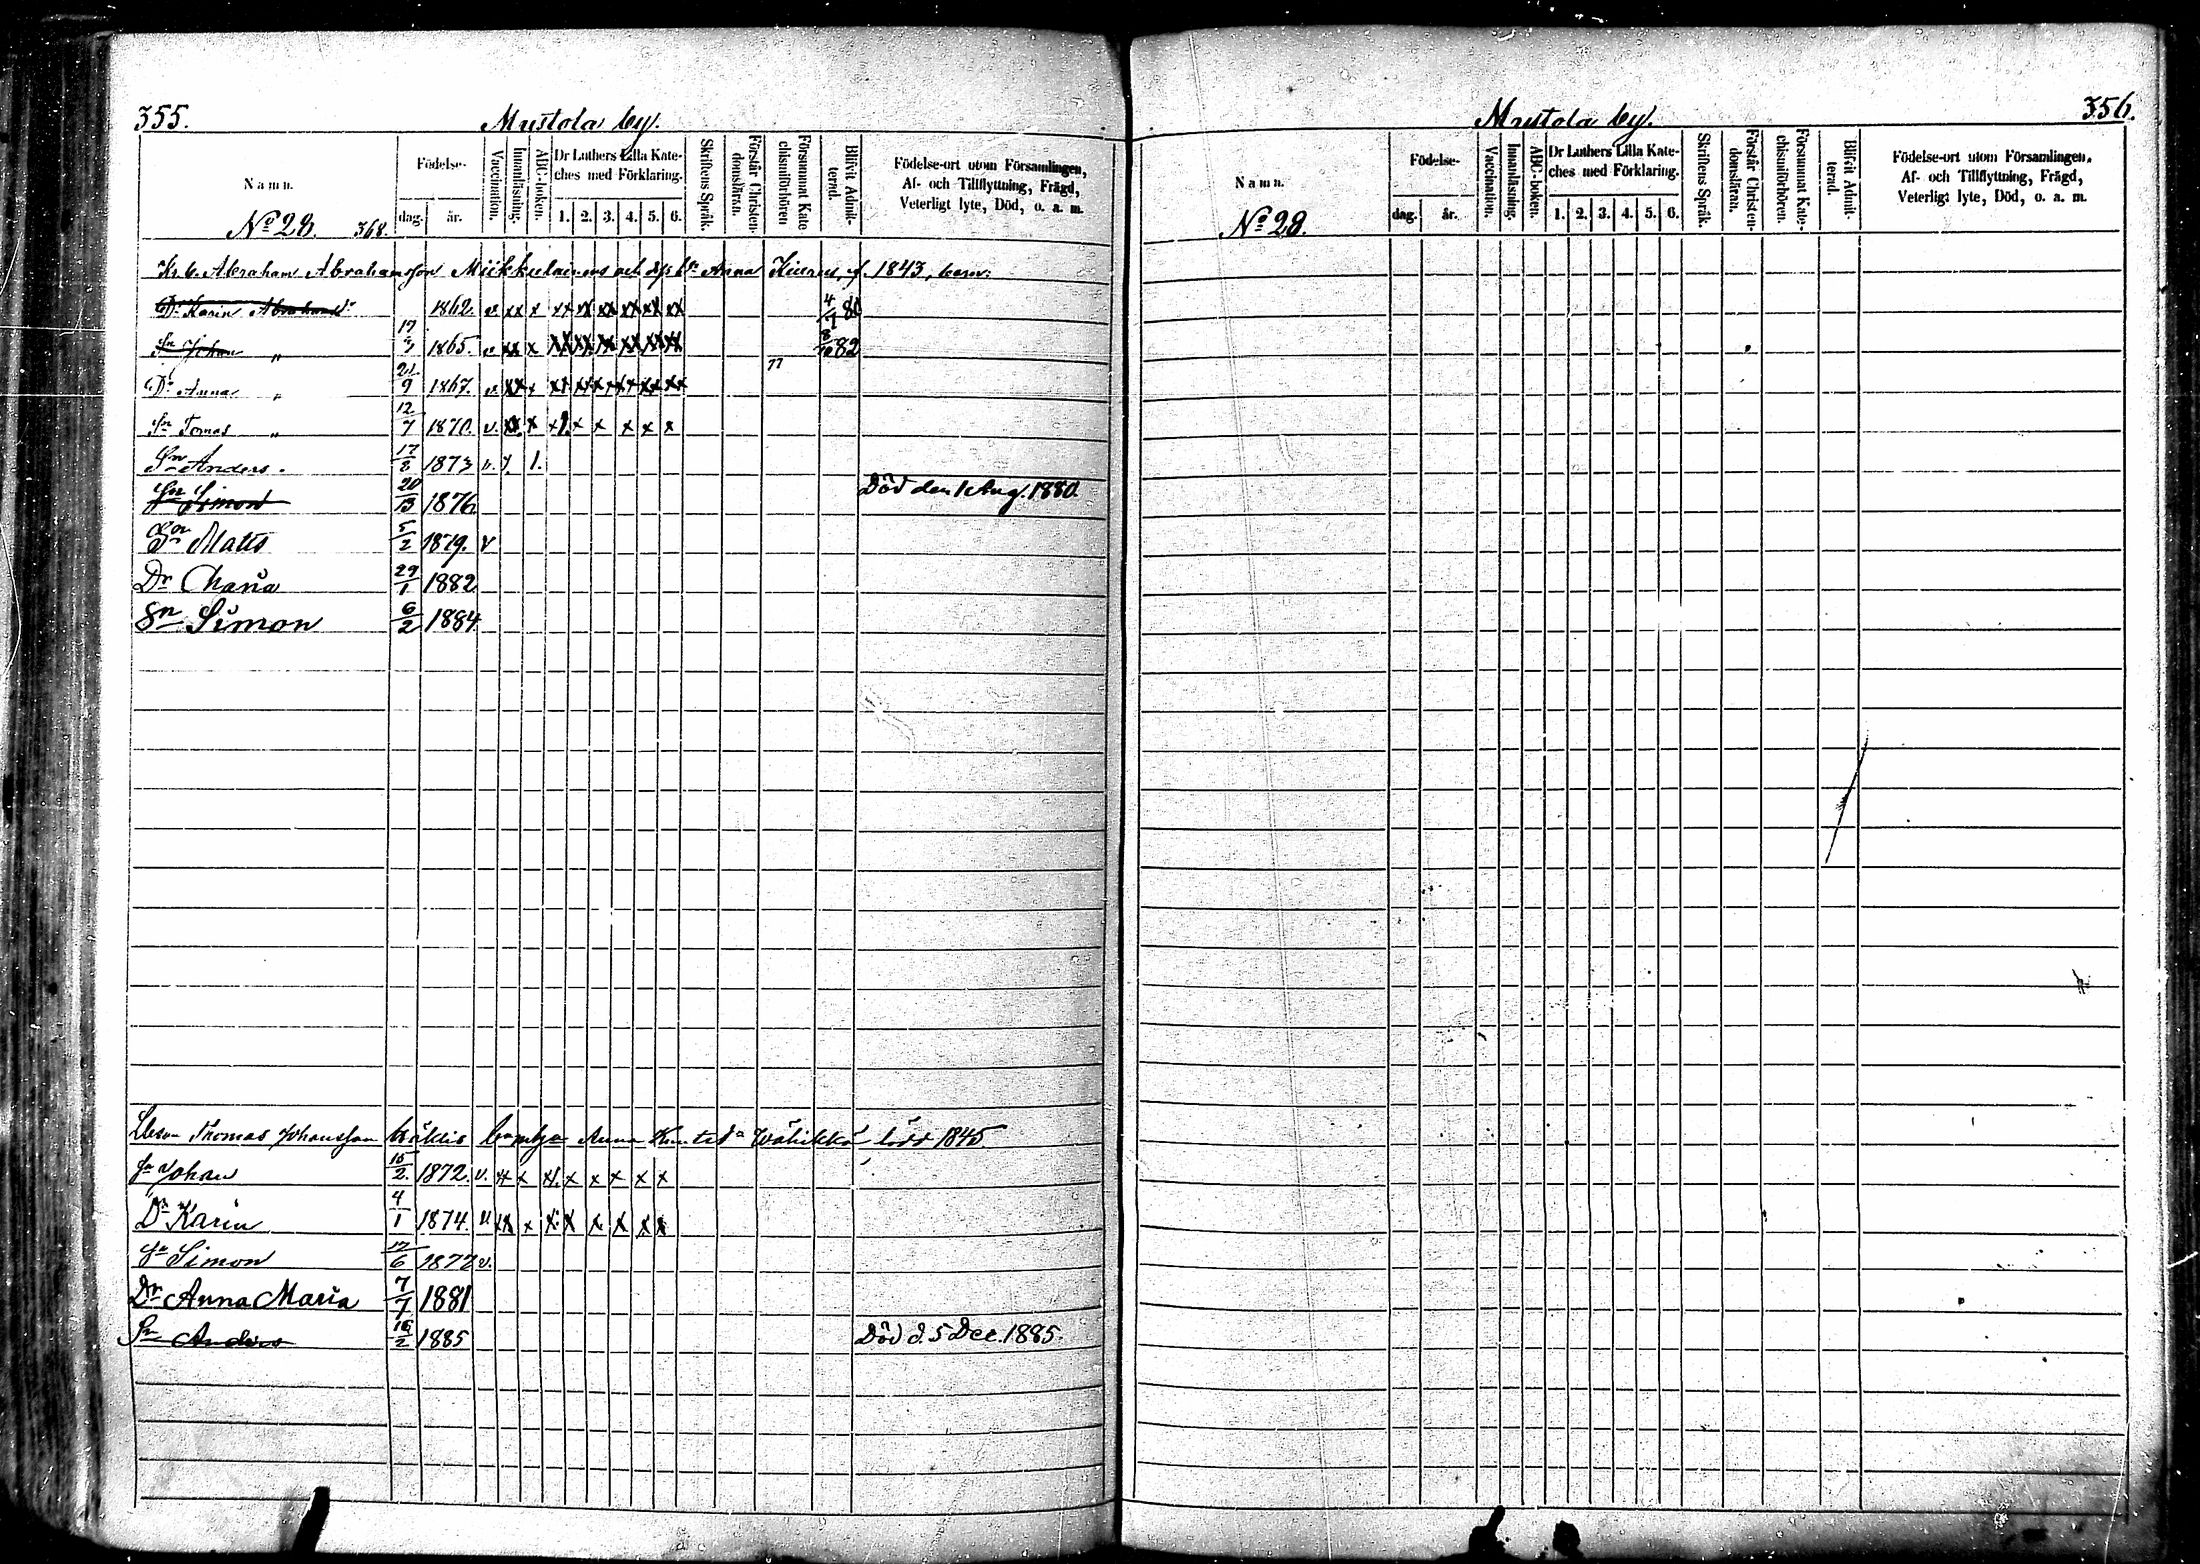 355.
Mustola by.
Namn.
Födelse-
dag. år.
Vaccination.
Innanläsning.
ABC-boken.
Dr Luthers Lilla Kate-
ches med Förklaring.
1. 2. 3. 4. 5. 6.
Skriftens Språk.
Förstår Christen-
domsläran.
Försummat Kate
chismiförhören
Blifvit Admit-
terad.
Födelse-ort utom Församlingen,
Af- och Tillflyttning, Frägd,
Veterligt lyte, Död, o. a. m.
No 28. 368.
Abraham Abrahamsson Miikkulainens och Anna f. 1843, barn:
Dr Karin Abrahamsdr 1862. v. xx x xx xx xx xx xx xx 4/7 81
Sn Johan " 1865. v xx x xx xx xx xx xx xx 8/10 82
Dr Anna " 21/9 1867. v. xx x xx xx xx xx xx xx 77
Sn Tomas " 12/7 1870. v. xx x x x x x x
Sn Anders. 17/2 1873 v. 1.
Sn Simon 20/13 1876 Död den 1 Aug. 1880.
Sn Matts 5/2 1879. v
Dr Maria 29/1 1882
Sn Simon 6/2 1884
Thomas Johansson Anna född 1845
Sn Johan 15/2 1872. v. x x x x x x x x
Dr Karin 4/1 1874. v xx x x x x x x x
Sn Simon 17/6 1877 v.
Dr Anna Maria 7/7 1881
Sn Anders 16/2 1885 Död d. 5 Dec. 1885.
356.
Mustola by.
Namn.
Födelse-
dag. år.
Vaccination.
Innanläsning.
ABC-boken.
Dr Luthers Lilla Kate-
ches med Förklaring.
1. 2. 3. 4. 5. 6.
Skriftens Språk.
Förstår Christen-
domsläran.
Försummat Kate-
chismiförhören.
Blifvit Admit-
terad.
Födelse-ort utom Församlingen,
Af- och Tillflyttning, Frägd,
Veterligt lyte, Död, o. a. m.
No 28.